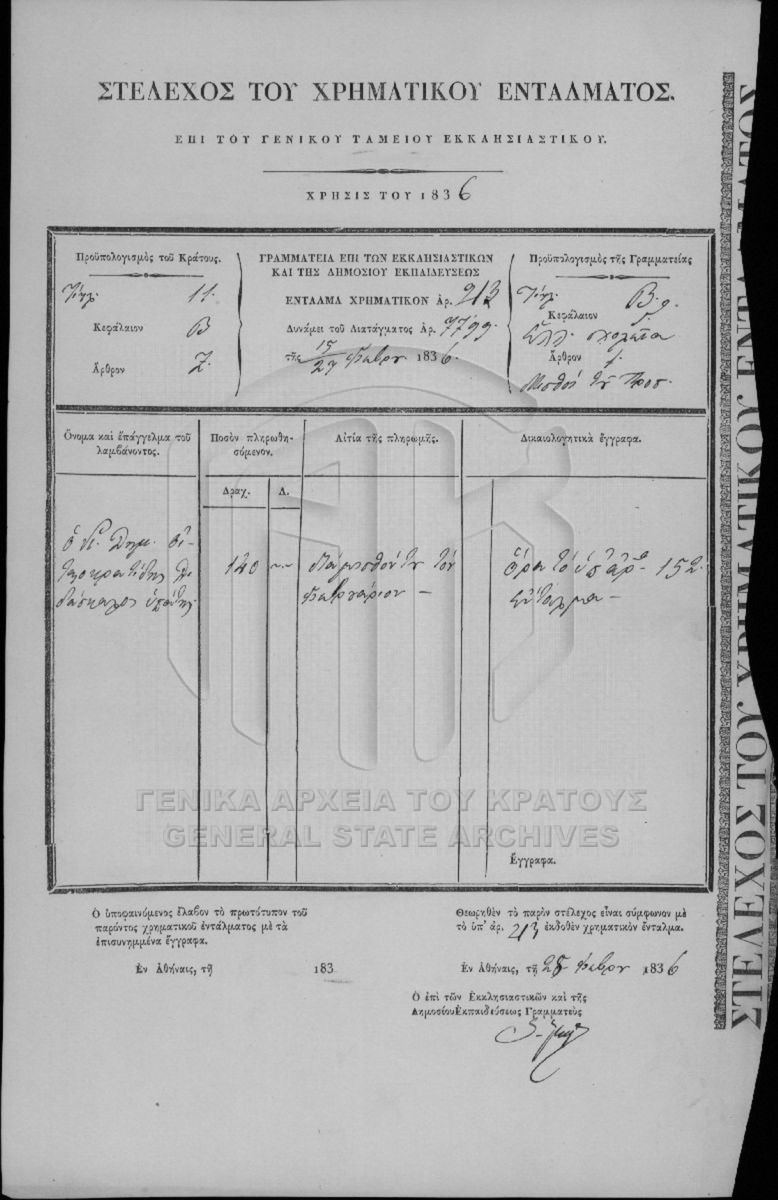 ΣΤΕΛΕΧΟΣ ΤΟΥ ΧΡΗΜΑΤΙΚΟΥ ΕΝΤΑΛΜΑΤΟΣ.
ΕΠΙ ΤΟΥ ΓΕΝΙΚΟΥ ΤΑΜΕΙΟΥ ΕΚΚΛΗΣΙΑΣΤΙΚΟΥ.
ΧΡΗΣΙΣ ΤΟΥ 1836
Προϋπολογισμὸς τοῦ Κράτους.
Τίτλ. 11.
Κεφάλαιον Β
Ἄρθρον 7.
ΓΡΑΜΜΑΤΕΙΑ ΕΠΙ ΤΩΝ ΕΚΚΛΗΣΙΑΣΤΙΚΩΝ
ΚΑΙ ΤΗΣ ΔΗΜΟΣΙΟΥ ΕΚΠΑΙΔΕΥΣΕΩΣ
ΕΝΤΑΛΜΑ ΧΡΗΜΑΤΙΚΟΝ Ἀρ. 213
Δυνάμει τοῦ Διατάγματος Ἀρ. 7799.
τῆς 15/27 Φεβρου 1836.
Προϋπολογισμὸς τῆς Γραμματείας
Τίτλ.
Κεφάλαιον
Ἑλλ. σχολεῖα
Ἄρθρον
Μισθοὶ
Ὄνομα καὶ ἐπάγγελμα τοῦ
λαμβάνοντος.
Ποσὸν πληρωθη-
σόμενον.
Αἰτία τῆς πληρωμῆς.
Δικαιολογητικὰ ἔγγραφα.
Δραχ. Δ.
ὁ Κ. Δημ.
120
τὸν
Φεβρουάριον —
Ὅρα τὸ ὑπ' ἀρ. 152.
ἔνταλμα —
Ἔγγραφα.
Ὁ ὑποφαινόμενος ἔλαβον τὸ πρωτότυπον τοῦ
παρόντος χρηματικοῦ ἐντάλματος μὲ τὰ
ἐπισυνημμένα ἔγγραφα.
Ἐν Ἀθήναις, τῇ 183
Θεωρηθὲν τὸ παρὸν στέλεχος εἶναι σύμφωνον μὲ
τὸ ὑπ' ἀρ. 213 ἐκδοθὲν χρηματικὸν ἔνταλμα.
Ἐν Ἀθήναις, τῇ 28 Φεβρου 1836
Ὁ ἐπὶ τῶν Ἐκκλησιαστικῶν καὶ τῆς
Δημοσίου Ἐκπαιδεύσεως Γραμματεὺς
ΣΤΕΛΕΧΟΣ ΤΟΥ ΧΡΗΜΑΤΙΚΟΥ ΕΝΤΑΛΜΑΤΟΣ
ΓΕΝΙΚΑ ΑΡΧΕΙΑ ΤΟΥ ΚΡΑΤΟΥΣ
GENERAL STATE ARCHIVES